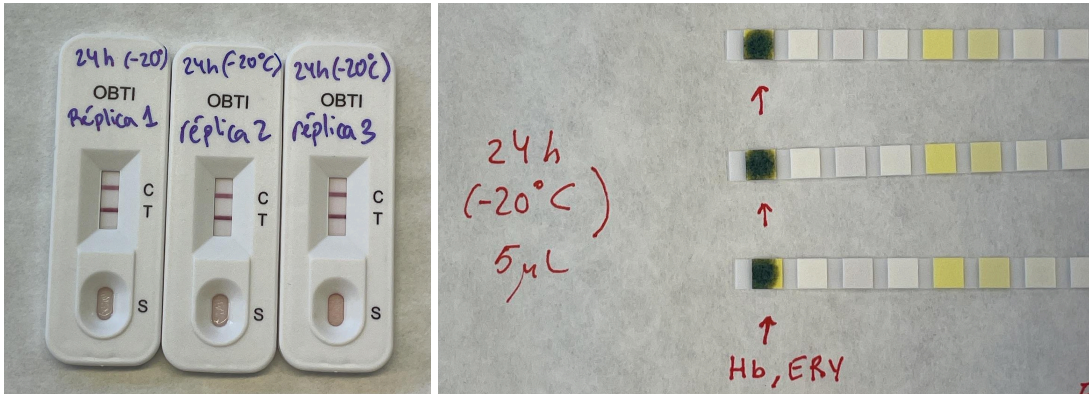 24h (-20º)
OBTI
Réplica 1
C
T
S
24h (-20ºC)
OBTI
réplica 2
C
T
S
24h (-20ºC)
OBTI
réplica 3
C
T
S
24 h
(-20°C)
5μL
Hb, ERY